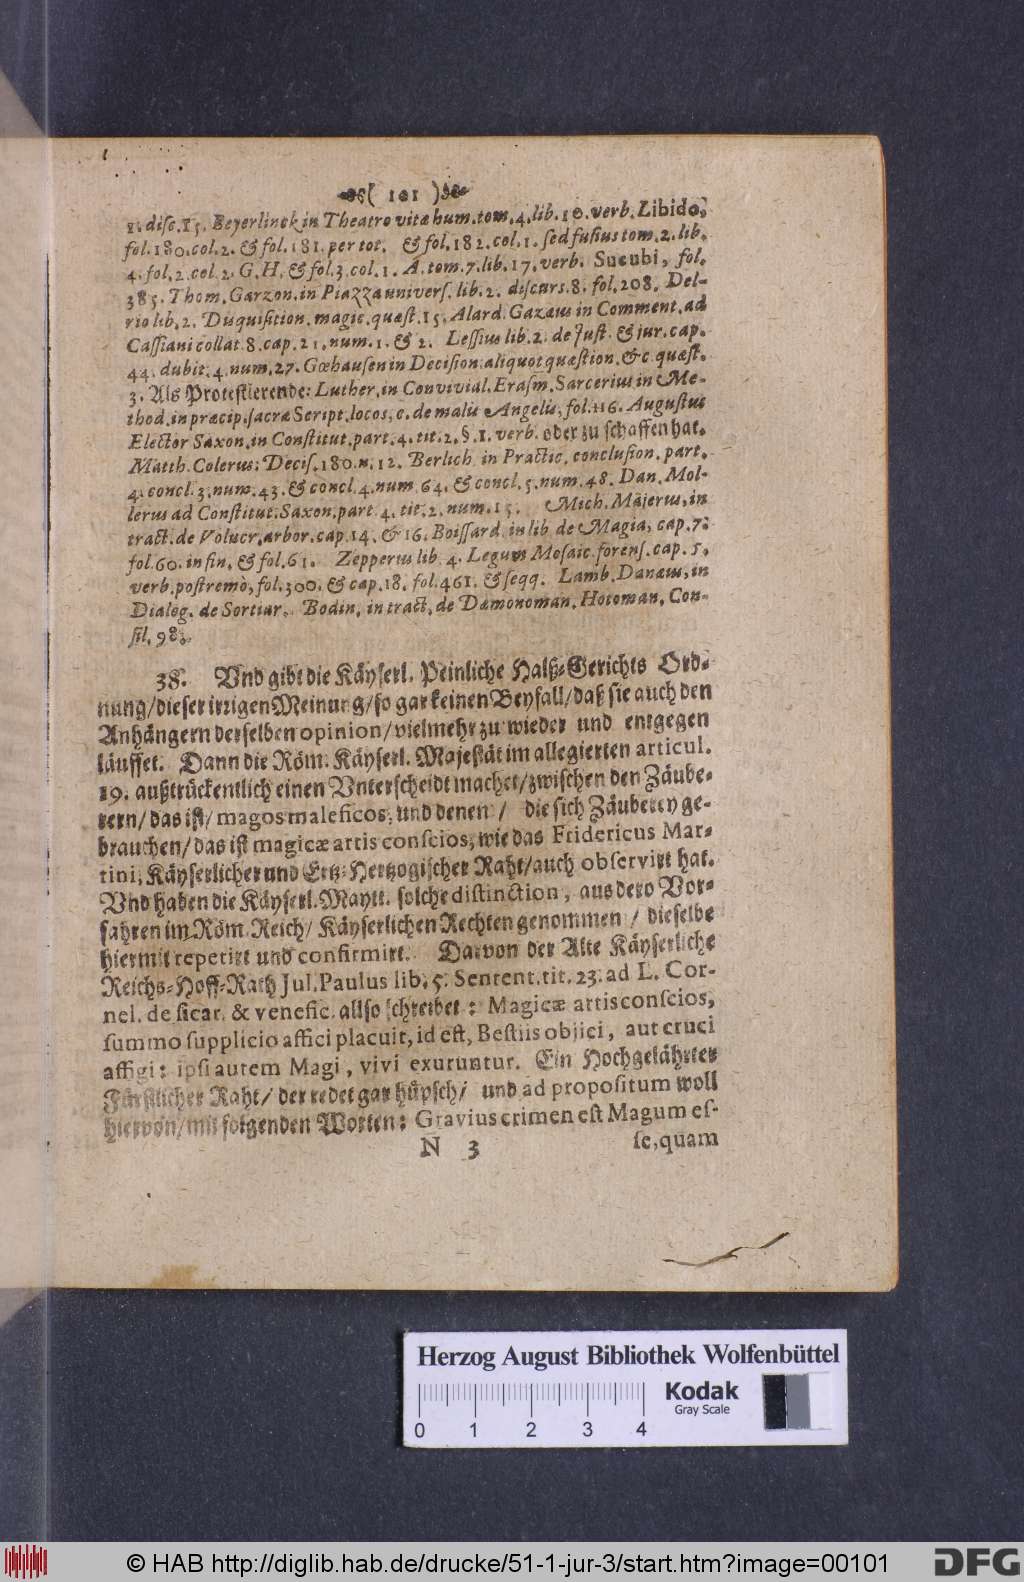 ( 101 )
2. disc. 15. Beyerlinck in Theatro vitæ hum. tom. 4. lib. 10. verb. Libido,
fol. 180. col. 2. & fol. 181. per tot. & fol. 182. col. 1. sed fusius tom. 2. lib.
4. fol. 2. col. 2. G. H. & fol. 3. col. 1. A. tom. 7. lib. 17. verb. Sucubi, fol.
385. Thom. Garzon. in Piazza univers. lib. 2. discurs. 8. fol. 208. Del-
rio lib. 2. Disquisition. magic. quæst. 15. Alard. Gazæus in Comment. ad
Cassiani collat. 8. cap. 21. num. 1. & 2. Lessius lib. 2. de Just. & jur. cap.
44. dubit. 4. num. 27. Gœhausen in Decision. aliquot quæstion. &c. quæst.
3. Als Protestierende: Luther. in Convivial. Erasm. Sarcerius in Me-
thod. in præcip. sacræ Script. locos, c. de malis Angelis, fol. 116. Augustus
Elector Saxon. in Constitut. part. 4. tit. 2. §. 1. verb. oder zu schaffen hat.
Matth. Colerus: Decis. 180. n. 12. Berlich. in Practic. conclusion. part.
4. concl. 3. num. 43. & concl. 4. num. 64. & concl. 5. num. 48. Dan. Mol-
lerus ad Constitut. Saxon. part. 4. tit. 2. num. 15. Mich. Mäjerus, in
tract. de Volucr. arbor. cap. 14. & 16. Boissard. in lib de Magia, cap. 7.
fol. 60. in fin. & fol. 61. Zepperus lib. 4. Legum Mosaic. forens. cap. 5.
verb. postremò, fol. 300. & cap. 18. fol. 461. & seqq. Lamb. Danæus, in
Dialog. de Sortiar. Bodin. in tract. de Dæmonoman. Hotoman. Con-
sil. 98.
38. Vnd gibt die Käyserl. Peinliche Halß-Gerichts Ord-
nung/ dieser irrigen Meinung/ so gar keinen Beyfall/ daß sie auch den
Anhängern derselben opinion/ vielmehr zu wieder und entgegen
läuffet. Dann die Röm. Käyserl. Majestät im allegierten articul.
19. außtrückentlich einen Vnterscheidt machet/ zwischen den Zäube-
rern/ das ist/ magos maleficos, und denen/ die sich Zäuberey ge-
brauchen/ das ist magicæ artis conscios, wie das Fridericus Mar-
tini, Käyserlicher und Ertz-Hertzogischer Raht/ auch observirt hat.
Vnd haben die Käyserl. Maytt. solche distinction, aus dero Vor-
fahren im Röm. Reich/ Käyserlichen Rechten genommen/ dieselbe
hiermit repetirt und confirmirt. Darvon der Alte Käyserliche
Reichs-Hoff-Rath Jul. Paulus lib. 5. Sentent. tit. 23. ad L. Cor-
nel. de sicar. & venefic. also schreibet: Magicæ artis conscios,
summo supplicio affici placuit, id est, Bestiis objici, aut cruci
affigi: ipsi autem Magi, vivi exuruntur. Ein Hochgelährter
Fürstlicher Raht/ der redet gar hüpsch/ und ad propositum woll
hiervon/ mit folgenden Worten: Gravius crimen est Magum es-
N 3 se, quam
Herzog August Bibliothek Wolfenbüttel
Kodak
Gray Scale
0 1 2 3 4
© HAB http://diglib.hab.de/drucke/51-1-jur-3/start.htm?image=00101
DFG